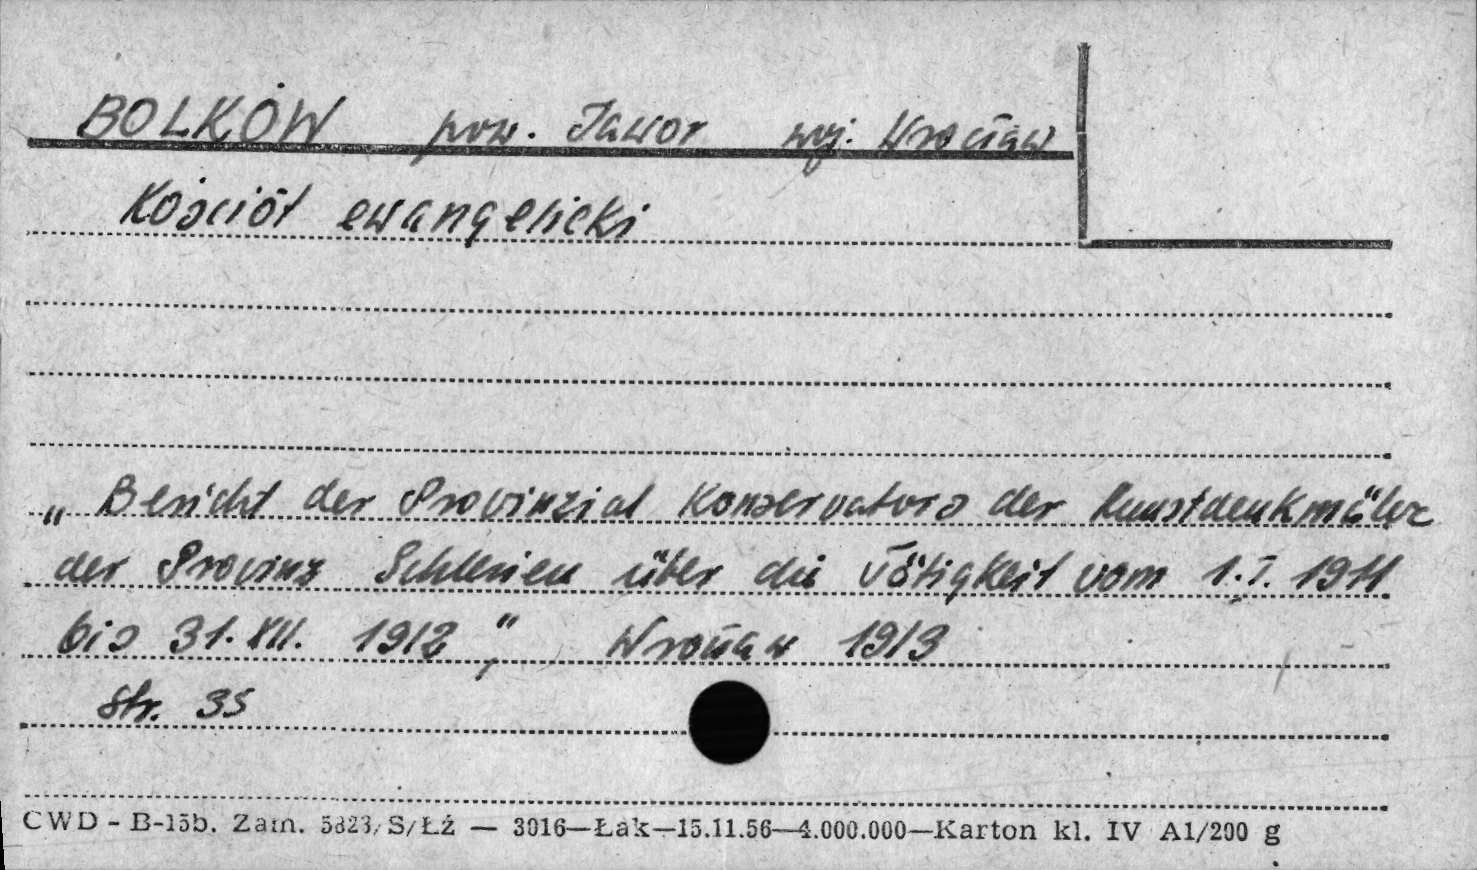 BOLKÓW pow. Jawor woj. Wrocław
Kościół ewangelicki
„Bericht der Provinzial Konservators der Kunstdenkmäler
der Provinz Schlesien über die Tätigkeit vom 1.I. 1911
bis 31.XII. 1912," Wrocław 1913
str. 35
CWD - B-15b. Zam. 5823/S/Łź — 3016—Łak—15.11.56—4.000.000—Karton kl. IV A1/200 g